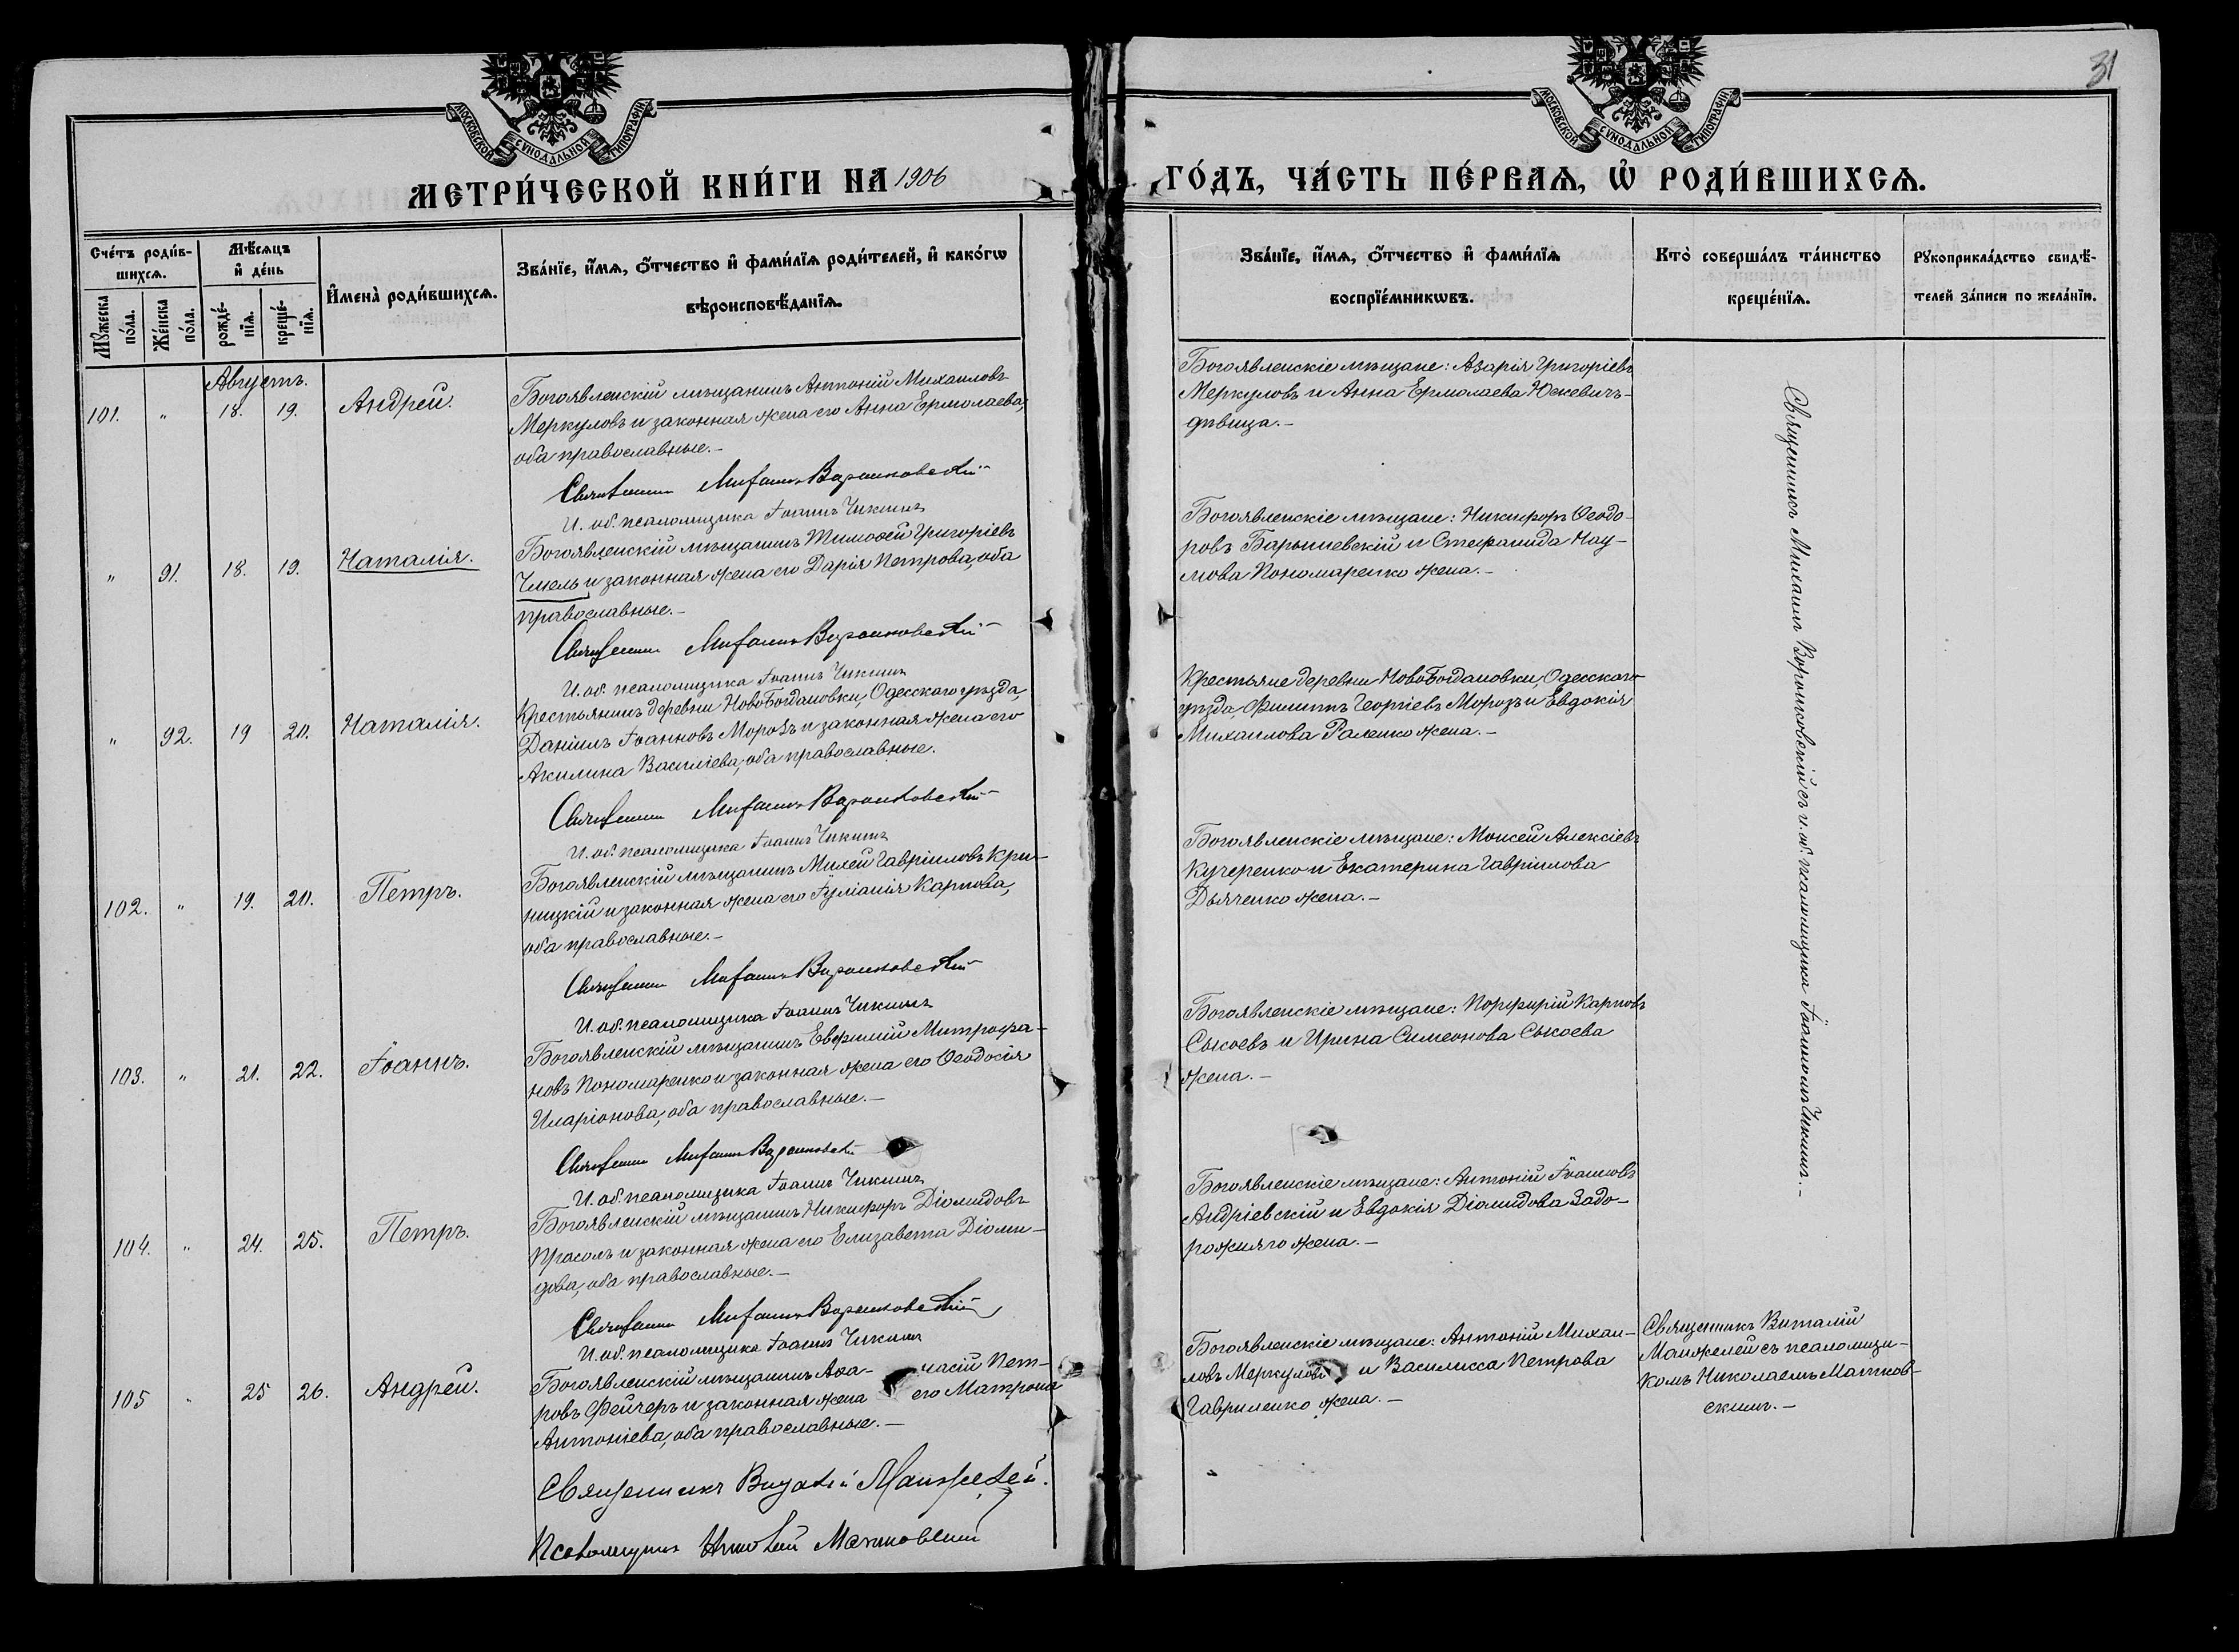 31
МОСКОВСКОЙ СѴНОДАЛЬНОЙ ТИПОГРАФІИ
МОСКОВСКОЙ СѴНОДАЛЬНОЙ ТИПОГРАФІИ
МЕТРИ́ЧЕСКОЙ КНИ́ГИ НА 1906 ГО́ДЪ, ЧА́СТЬ ПЕ́РВАѦ, Ѡ҆ РОДИ́ВШИХСѦ.
Сче́тъ роди́в-
шихсѧ.
Мꙋ́жеска
по́ла.
Же́нска
по́ла.
Мѣ́сѧцъ
и҆ де́нь
рожде́-
нїѧ.
креще́-
нїѧ.
И҆мена̀ роди́вшихсѧ.
Зва́нїе, и҆́мѧ, ѻ҆́тчество и҆ фами́лїѧ роди́телей, и҆ како́гѡ
вѣроисповѣ́данїѧ.
Зва́нїе, и҆́мѧ, ѻ҆́тчество и҆ фами́лїѧ
воспрїе́мникѡвъ.
Кто̀ соверша́лъ та́инство
креще́нїѧ.
Рꙋкоприкла́дство свидѣ́-
телей за́писи по жела́нїю.
Августъ.
101. " 18. 19. Андрей.
Богоявленскій мѣщанинъ Антоній Михаиловъ
Меркуловъ и законная жена его Анна Ермолаева,
оба православные.-
Священникъ Михаилъ Воронковскій
И. об. псаломщика Іоаннъ Чикинъ
Богоявленскіе мѣщане: Азарія Григоріевъ
Меркуловъ и Анна Ермолаева Юскевичъ-
дѣвица.-
Священникъ Михаилъ Воронковскій съ и. об. псаломщика Іоанномъ Чикинъ.-
" 91. 18. 19. Наталія.
Богоявленскій мѣщанинъ Тимоѳей Григоріевъ
Чмель и законная жена его Дарія Петрова, оба
православные.-
Священникъ Михаилъ Воронковскій
И. об. псаломщика Іоаннъ Чикинъ
Богоявленскіе мѣщане: Никифоръ Ѳеодо-
ровъ Барышевскій и Стефанида Нау-
мова Пономаренко жена.-
" 92. 19 20. Наталія.
Крестьянинъ деревни НовоБогдановки, Одесскаго уѣзда,
Даніилъ Іоанновъ Морозъ и законная жена его
Акилина Василіева, оба православные.
Священникъ Михаилъ Воронковскій
И. об. псаломщика Іоаннъ Чикинъ
Крестьяне деревни НовоБогдановки, Одесскаго
уѣзда, Филиппъ Георгіевъ Морозъ и Евдокія
Михаилова Раленко жена.-
102. " 19. 20. Петръ.
Богоявленскій мѣщанинъ Михей Гавріиловъ Кри-
ницкій и законная жена его Іуліанія Карпова,
оба православные.-
Священникъ Михаилъ Воронковскій
И. об. псаломщика Іоаннъ Чикинъ
Богоявленскіе мѣщане: Моисей Алексіевъ
Кучеренко и Екатерина Гавріилова
Дьяченко жена.-
103. " 21. 22. Іоаннъ.
Богоявленскій мѣщанинъ Евфимій Митрофа-
новъ Пономаренко и законная жена его Ѳеодосія
Иларіонова, оба православные.-
Священникъ Михаилъ Воронковскій
И. об. псаломщика Іоаннъ Чикинъ
Богоявленскіе мѣщане: Порфирій Карповъ
Сысоевъ и Ирина Симеонова Сысоева
жена.-
104. " 24. 25. Петръ.
Богоявленскій мѣщанинъ Никифоръ Діомидовъ
Прасолъ и законная жена его Елизавета Діоми-
дова, оба православные.-
Священникъ Михаилъ Воронковскій
И. об. псаломщика Іоаннъ Чикинъ
Богоявленскіе мѣщане: Антоній Іоанновъ
Андріевскій и Евдокія Діомидова Задо-
рожняго жена.-
105 " 25 26. Андрей.
Богоявленскій мѣщанинъ Аѳа- насій Пет-
ровъ Фейчеръ и законная жена его Матрона
Антоніева, оба православные.-
Священникъ Виталій Манжелей.
Псаломщикъ Николай Матковскій
Богоявленскіе мѣщане: Антоній Михаи-
ловъ Меркуловъ и Василисса Петрова
Гавриленко жена.-
Священникъ Виталій
Манжелей съ псаломщи-
комъ Николаемъ Матков-
скимъ.-